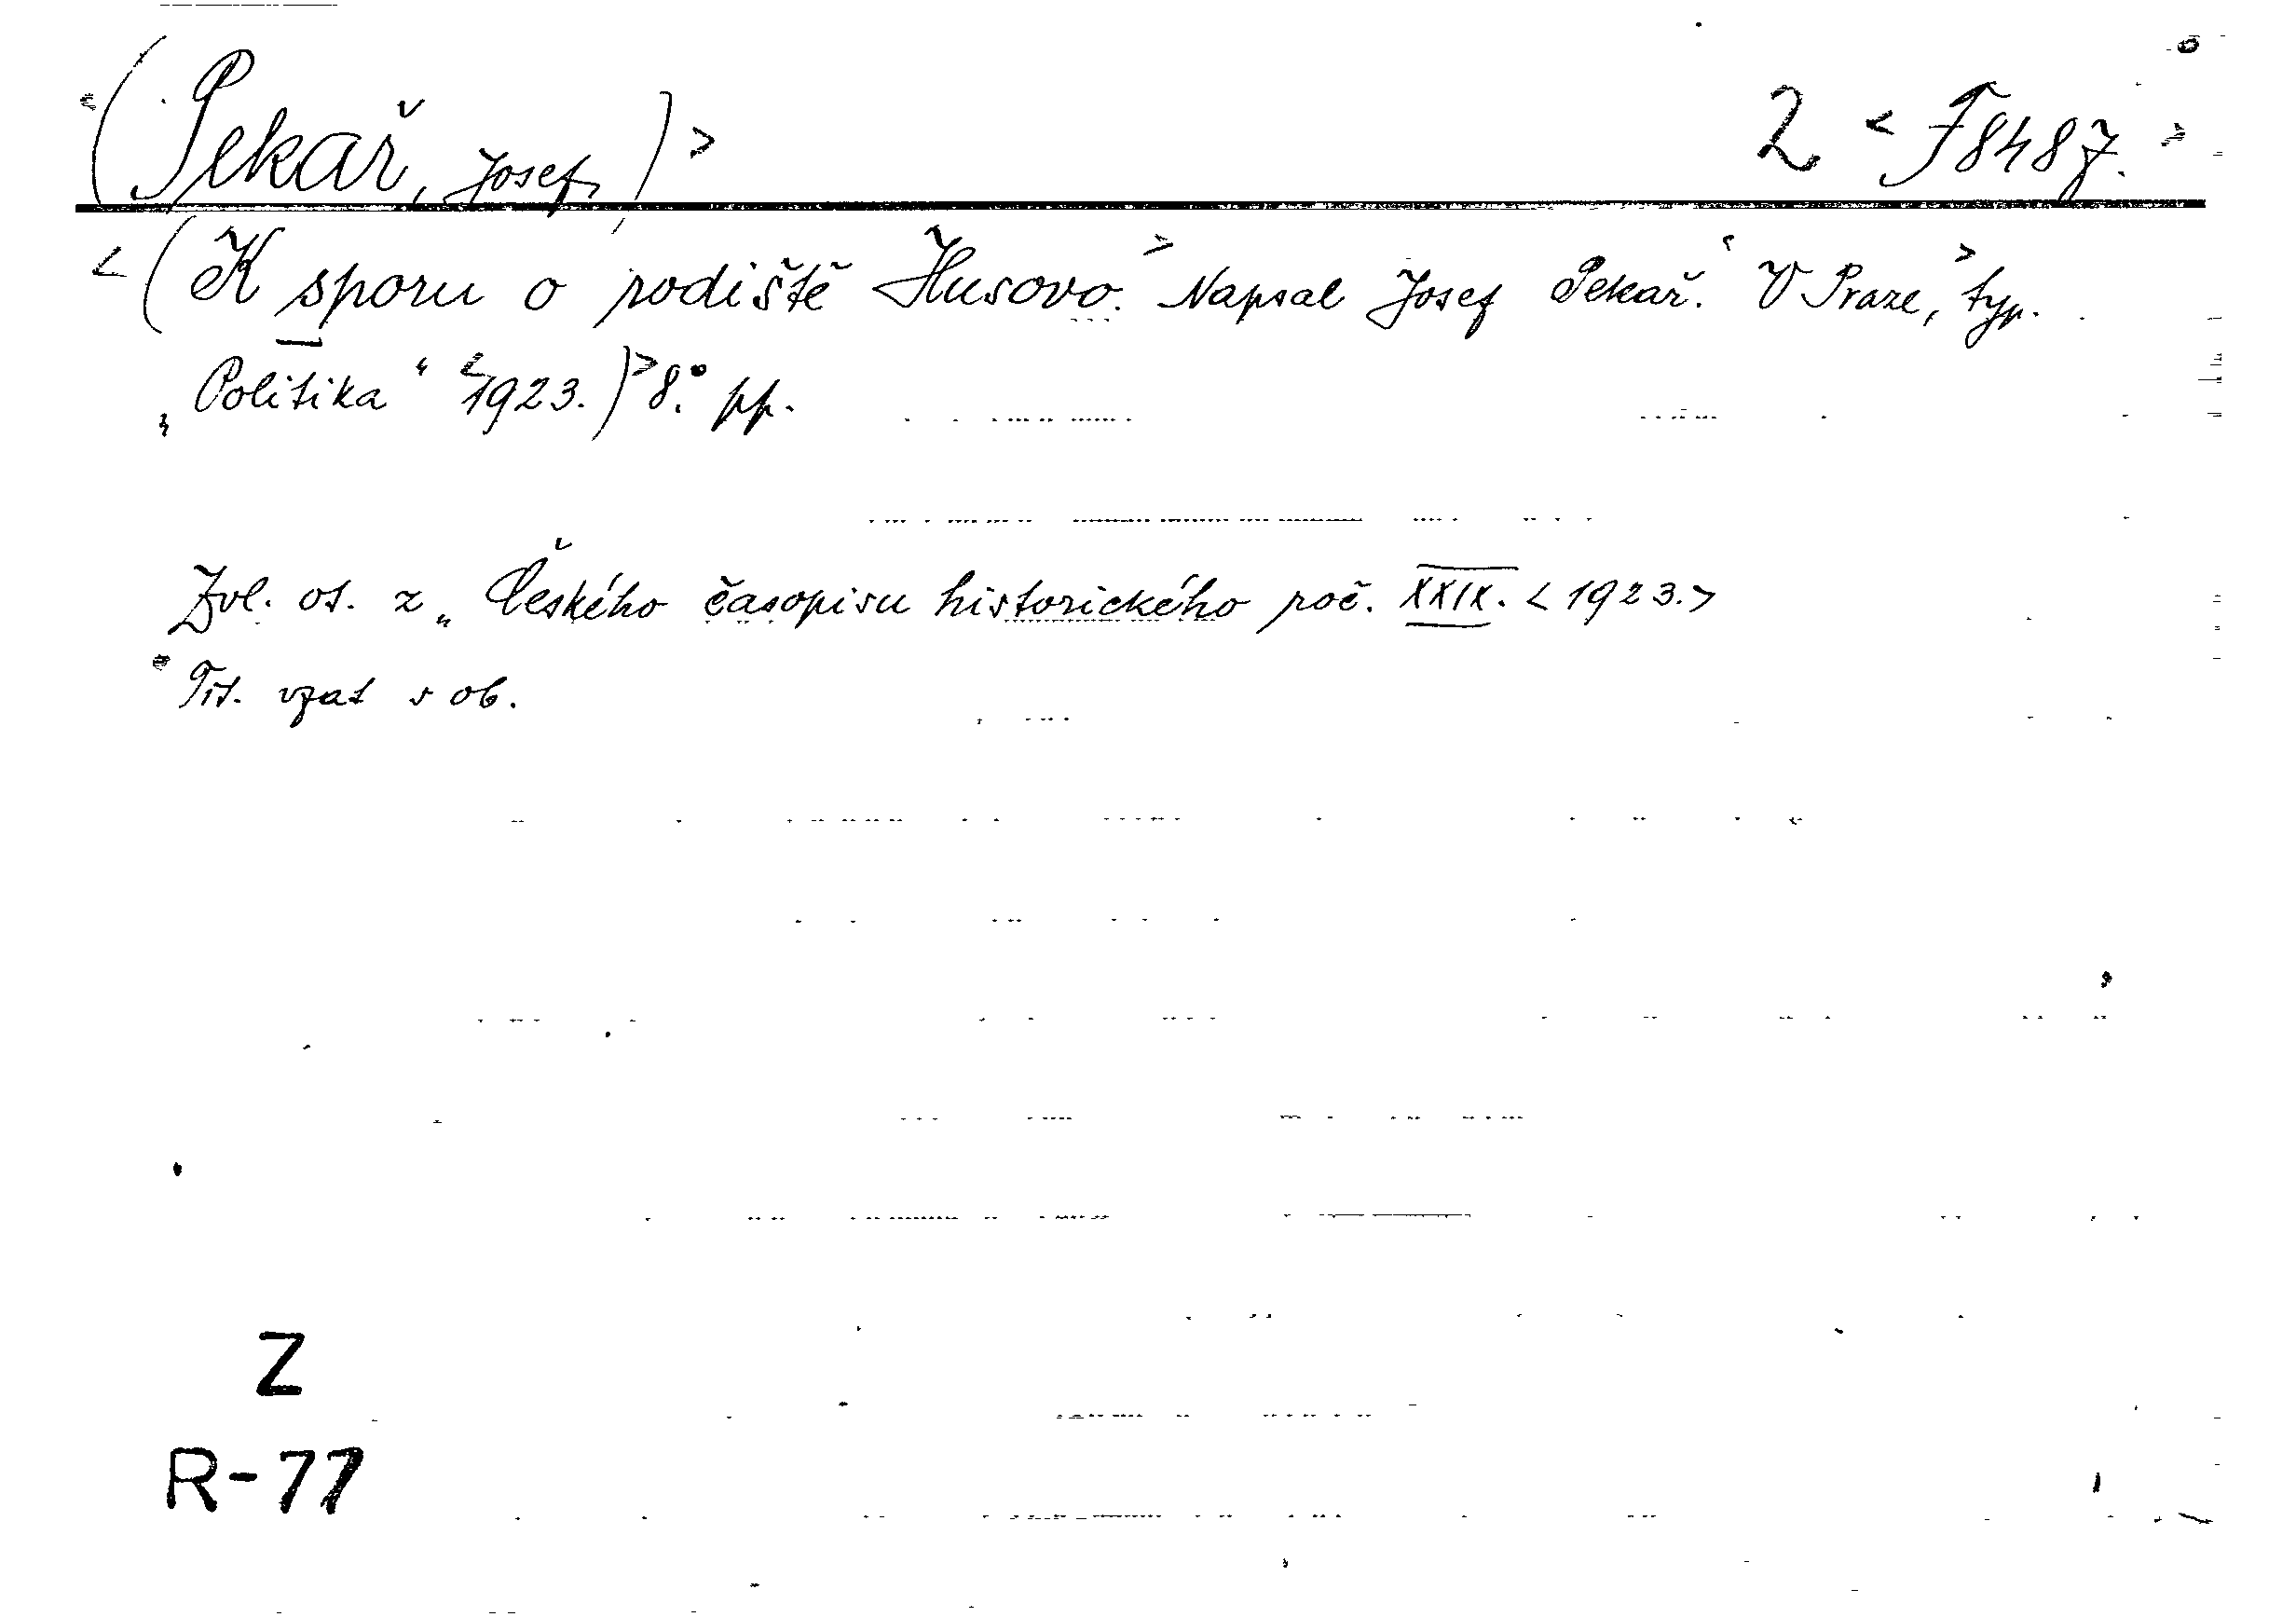 (Pekař, Josef,)> 2 <F 8487.>
<(K sporu o rodiště Husovo.> Napsal Josef Pekař.< V Praze,> typ.
„Politika“ <1923.)> 8.° pp.
Zvl. ot. z „Českého časopisu historického roč. XXIX. <1923.>
Tit. vzat s ob.
Z
R-77